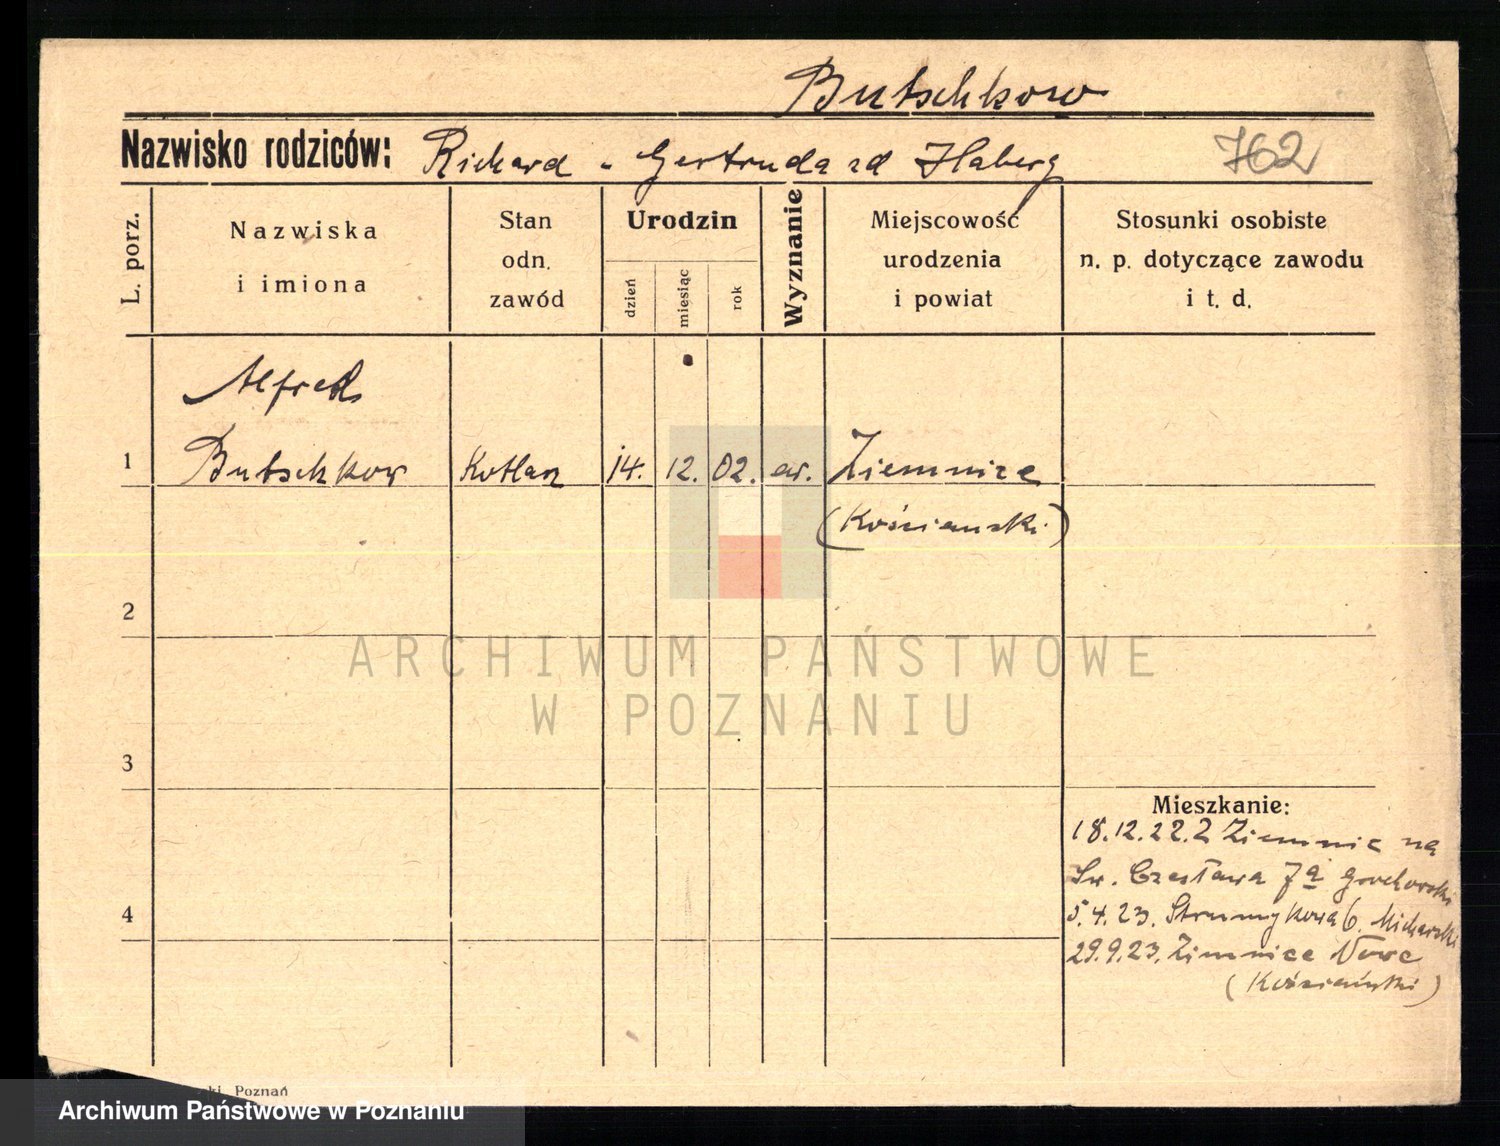 Butschkow
Nazwisko rodziców: Richard - Gertruda zd Haberg
762
L. porz.
Nazwiska
i imiona
Stan
odn.
zawód
Urodzin
dzień
miesiąc
rok
Wyznanie
Miejscowość
urodzenia
i powiat
Stosunki osobiste
n. p. dotyczące zawodu
i t. d.
Alfred
1 Butschkow Kotlarz 14. 12. 02. ew. Ziemnice
(Kościański)
2
ARCHIWUM PAŃSTWOWE
W POZNANIU
3
Mieszkanie:
18.12.22. z Ziemnic na
Św. Czesława 7a Grochowski
4
5.4.23. Strumykowa 6. Micharski
29.9.23. Zimnice Nowe
(Kościański)
ki, Poznań
Archiwum Państwowe w Poznaniu